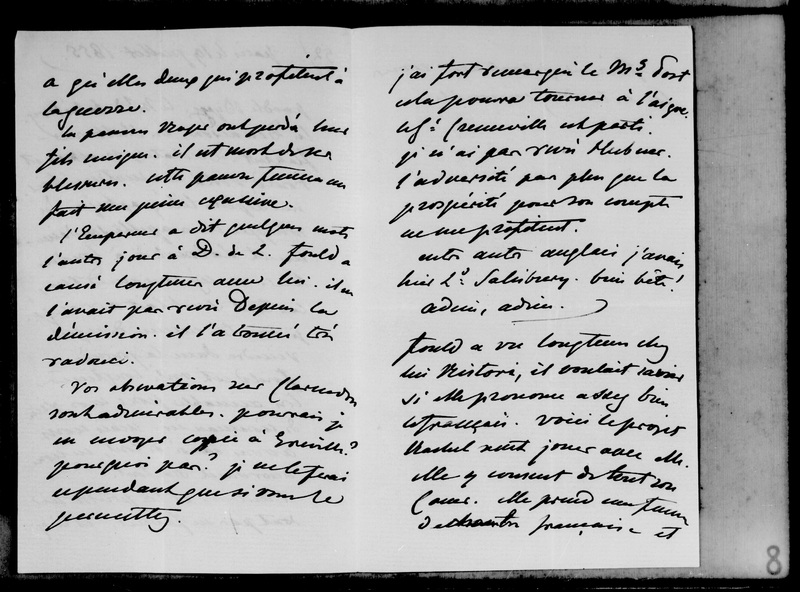 a qu'elles deux qui profitent à
la guerre.
la pauvre Mrager ont perdu leur
fils unique. il est mort de ses
blessures. cette pauvre femme me
fait une peine extrême.
l'Empereur a dit quelques mots
l'autre jour à D. de L. fould a
causé longtems avec lui. il ne
l'avait pas revu Depuis la
démission. il l'a trouvé très
radouci.
Vos observations sur Clarendon
sont admirables. pourrais je
en envoyer copie à Greville ?
pourquoi pas ? je ne le ferai
cependant que si vous le
permettez.
j'ai fort remarqué le Mg. dont
cela pourra tourner à l'aigre.
le Gl. Crenneville est parti.
je n'ai pas revu Hubner.
l'adversité pas plus que la
prospérité pour son compte
ne me profitent.
entre autres anglais j'avais
hier Ld. Salisbury. bien bête !
adieu, adieu.
fould a vu longtems chez
lui Ristori, il voulait savoir
si elle prononce assez bien
le français. voici le projet
Rachel veut jouer avec elle.
elle y consent de tout son
Coeur. elle prend une femme
de chambre française et
8